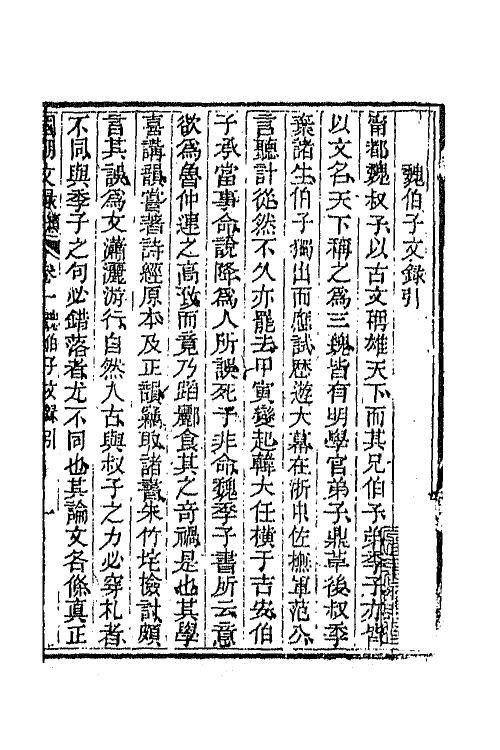 魏伯子文録引
甯都魏叔子以古文稱雄天下而其兄伯子弟季子亦皆
以文名天下稱之為三魏皆有明學官弟子鼎革後叔季
棄諸生伯子獨出而應試歴遊大幕在浙中佐撫軍范公
言聽計從然不久亦罷去甲寅變起韓大任横于吉安伯
子承當事命說降為人所誤死于非命魏季子書所云意
欲為魯仲連之高致而竟乃蹈酈食其之奇禍是也其學
喜講韻嘗著詩經原本及正韻竊取諸書朱竹垞檢討頗
言其誤為文瀟灑游行自然入古與叔子之力必穿札者
不同與季子之句必錯落者尤不同也其論文各條真正
國朝文录續 卷一魏伯子文錄引 一